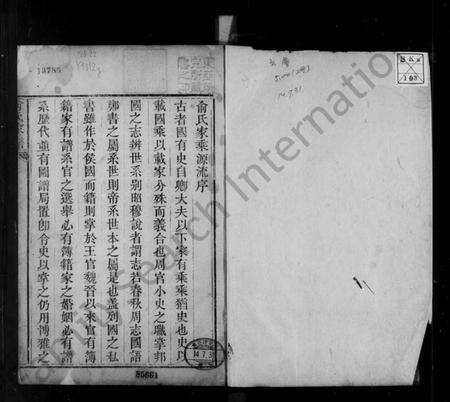 俞氏家乘源流序
古者國有史自卿大夫以下家有乘乘猶史也史以
載國乘以載家分殊而義合也周官小史之職掌邦
國之志辨世系別昭穆說者謂志若春秋周志國語
鄭書之屬系世則帝系世本之屬是也蓋列國之私
書雖作於侯國而籍則掌於王官魏晉以來官有簿
籍家有譜系官之選舉必有簿籍家之婚姻必有譜
系歷代並有圖譜局置郎令史以掌之仍用博雅之
85661
14.7.31
108